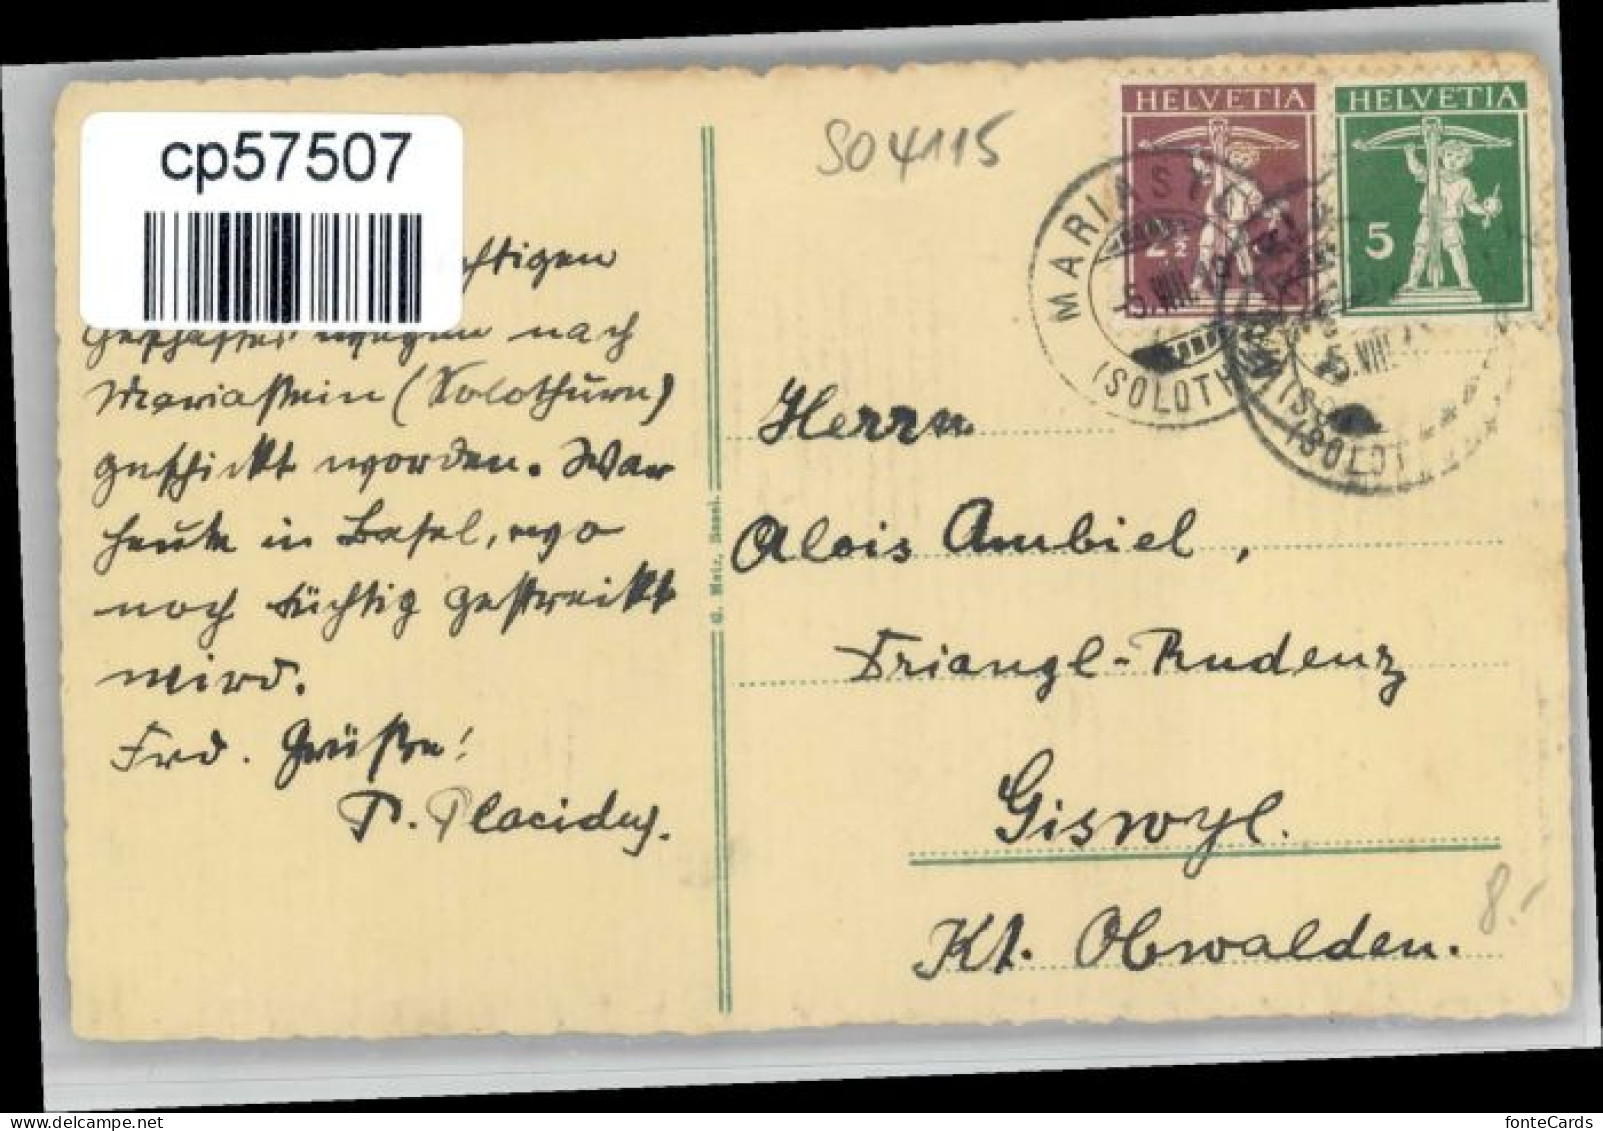 cp57507
SO 4115
HELVETIA
2½
HELVETIA
5
MARIASTEIN
-5.VIII.19
(SOLOTHURN)
-5.VIII.
(SOLOT
ftigen
Geschäftes wegen nach
Mariastein (Solothurn)
geschickt worden. War
heute in Basel, wo
noch tüchtig gestreikt
wird.
Frd. Grüße!
P. Placidus.
G. Metz, Basel.
Herrn
Alois Ambiel,
Triangl-Rudenz
Giswyl.
Kt. Obwalden.
8.-
fonteCards